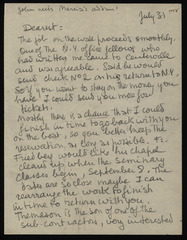 July 31
Dearest:
The job on the whole proceeds smoothly.
One of the N.Y. office fellows who
had hired me came to
was agreeable. Said he would
send check No 2 on his return to N.Y.
So if you want to stay on the money, you
have, I could send you mss for
tickets.
Mostly there is a chance that I could
finish in time to go back with you
on the boat, so you better keep the
reservation as long as possible. A.
Fried boy would like the chapel
clean up when the seminary
classes begin, September 8. The
dates are so close maybe I can
rearrange the work to finish
in time to return with you.
The mason is the son of one of the
sub-contractors, very interested